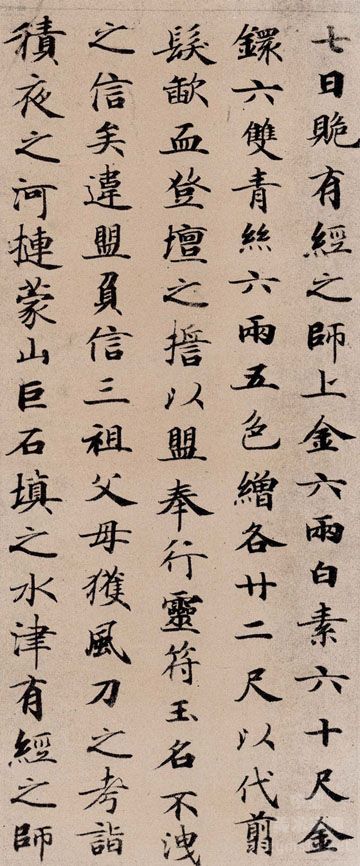 七日貽有經之師上金六兩白素六十尺金
鐶六雙青絲六兩五色繒各廿二尺以代翦
髮歃血登壇之誓以盟奉行靈符玉名不洩
之信矣違盟負信三祖父母獲風刀之考詣
積夜之河摙蒙山巨石填之水津有經之師